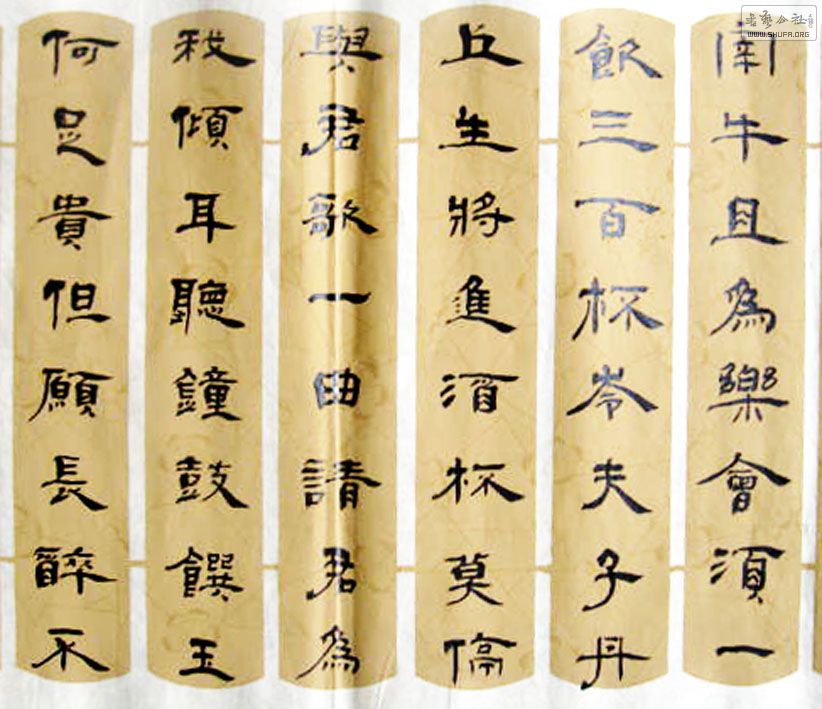 宰牛且為樂會須一
飲三百杯岑夫子丹
丘生將進酒杯莫停
與君歌一曲請君為
我傾耳聽鐘鼓饌玉
何足貴但願長醉不
书艺公社
WWW.SHUFA.ORG